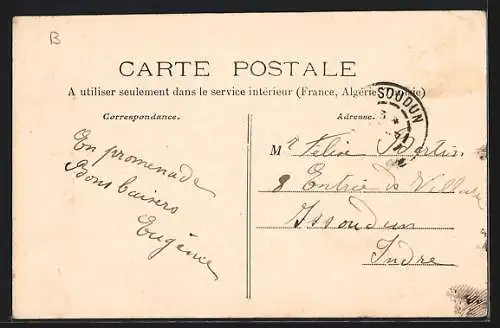 B
CARTE POSTALE
A utiliser seulement dans le service intérieur (France, Algérie, Tunisie)
Correspondance.
Adresse.
SOUDUN
En promenade
Bons baisers
Eugénie
Mr Félix Bertin
8 Entrée de Villate
Issoudun
Indre